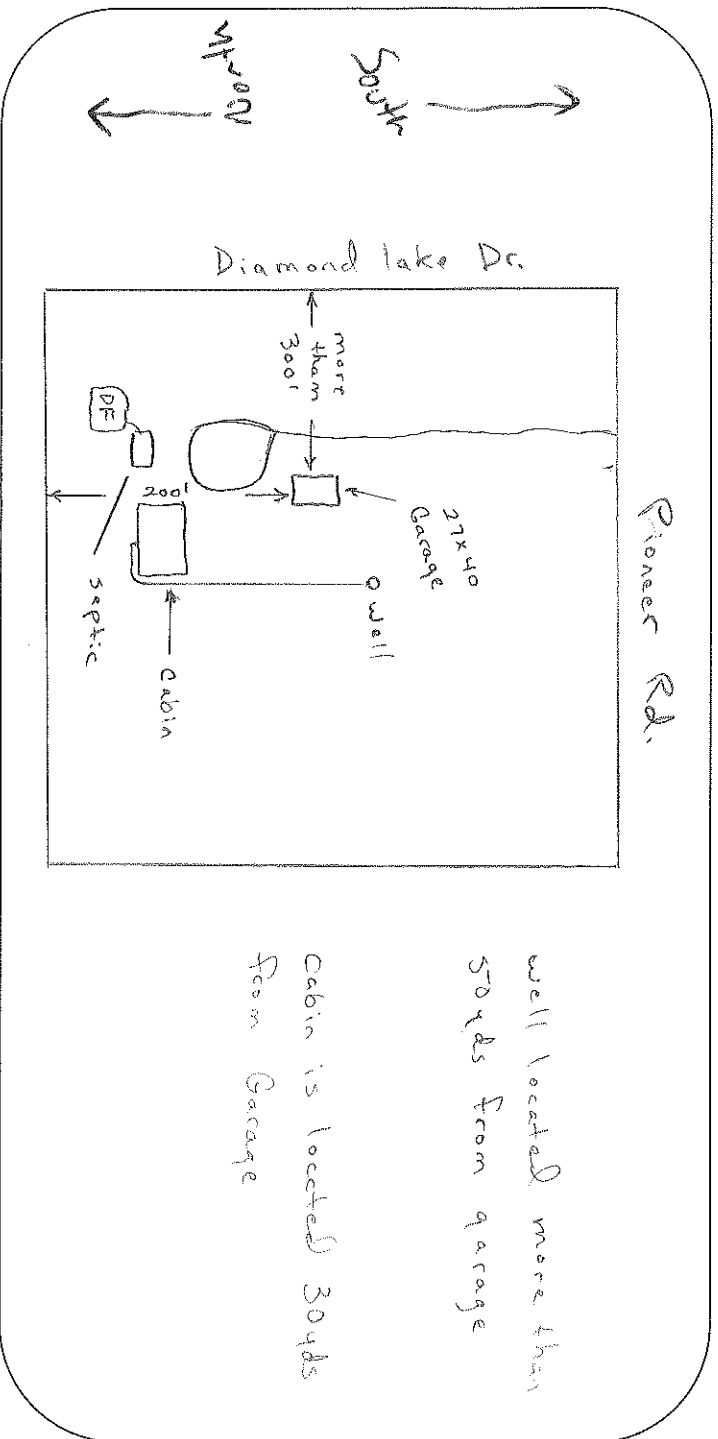 North
South
Diamond lake Dr.
Pioneer Rd.
more
than
300'
27x40
Garage
well
200'
DF
septic
Cabin
well located more than
50yds from garage
Cabin is located 30yds
from Garage